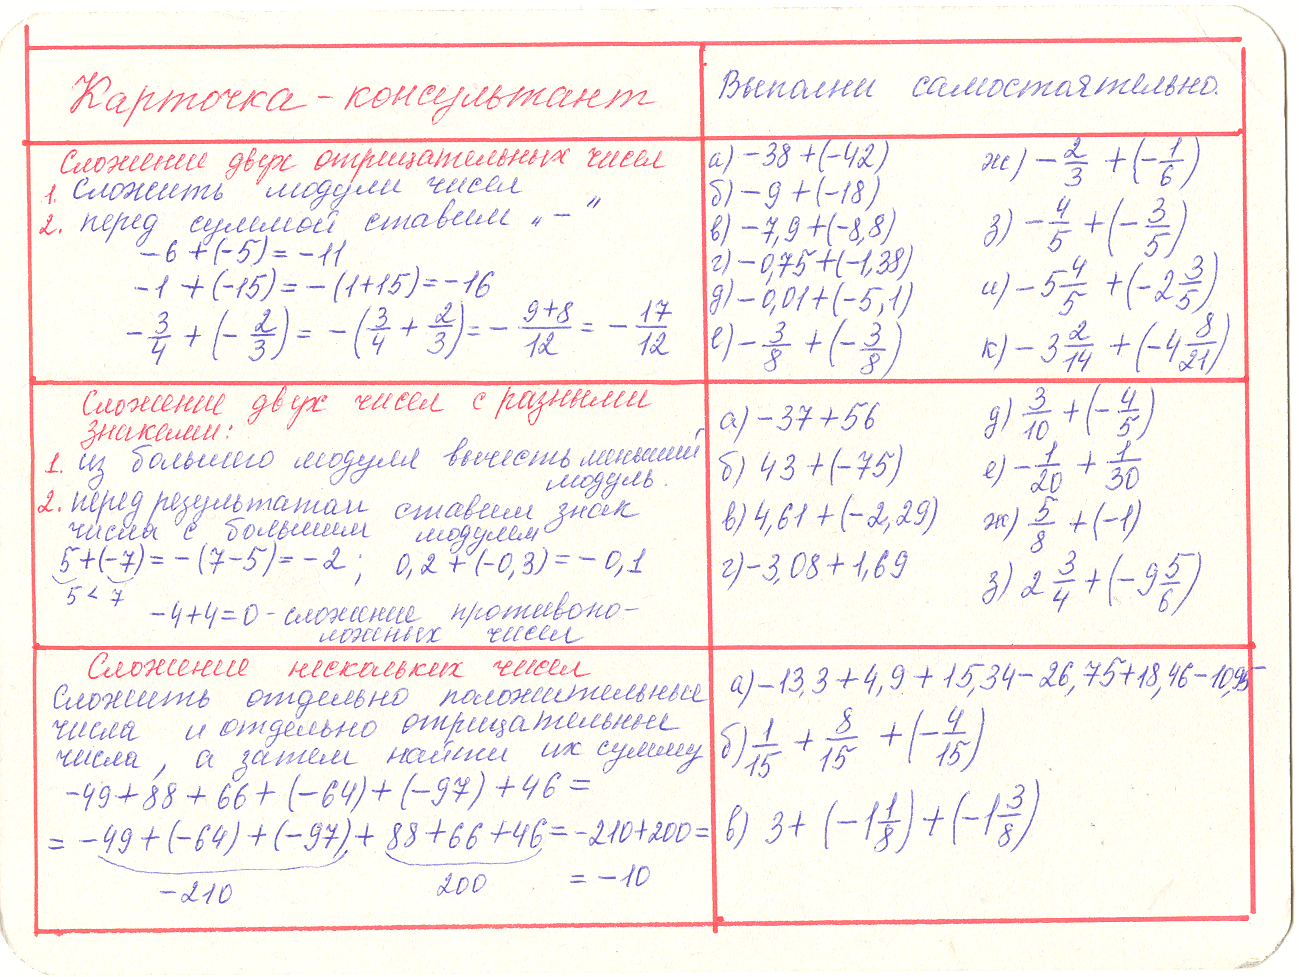 Карточка-консультант
Выполни самостоятельно.
Сложение двух отрицательных чисел
1. Сложить модули чисел
2. перед суммой ставим „ – “
-6 + (-5) = -11
-1 + (-15) = -(1+15) = -16
-3/4 + (-2/3) = -(3/4 + 2/3) = -(9+8)/12 = -17/12
а) -38 + (-42)
б) -9 + (-18)
в) -7,9 + (-8,8)
г) -0,75 + (-1,38)
д) -0,01 + (-5,1)
е) -3/8 + (-3/8)
ж) -2/3 + (-1/6)
з) -4/5 + (-3/5)
и) -5 4/5 + (-2 3/5)
к) -3 2/14 + (-4 8/21)
Сложение двух чисел с разными
знаками:
1. из большего модуля вычесть меньший
модуль.
2. перед результатом ставим знак
числа с большим модулем
5 + (-7) = -(7-5) = -2 ; 0,2 + (-0,3) = -0,1
5 < 7
-4+4=0 - сложение противопо-
ложных чисел
а) -37 + 56
б) 43 + (-75)
в) 4,61 + (-2,29)
г) -3,08 + 1,69
д) 3/10 + (-4/5)
е) -1/20 + 1/30
ж) 5/8 + (-1)
з) 2 3/4 + (-9 5/6)
Сложение нескольких чисел
Сложить отдельно положительные
числа и отдельно отрицательные
числа, а затем найти их сумму
-49 + 88 + 66 + (-64) + (-97) + 46 =
= -49 + (-64) + (-97) + 88 + 66 + 46 = -210+200 =
-210 200 = -10
а) -13,3 + 4,9 + 15,34 - 26,75 + 18,46 - 10,95
б) 1/15 + 8/15 + (-4/15)
в) 3 + (-1 1/8) + (-1 3/8)